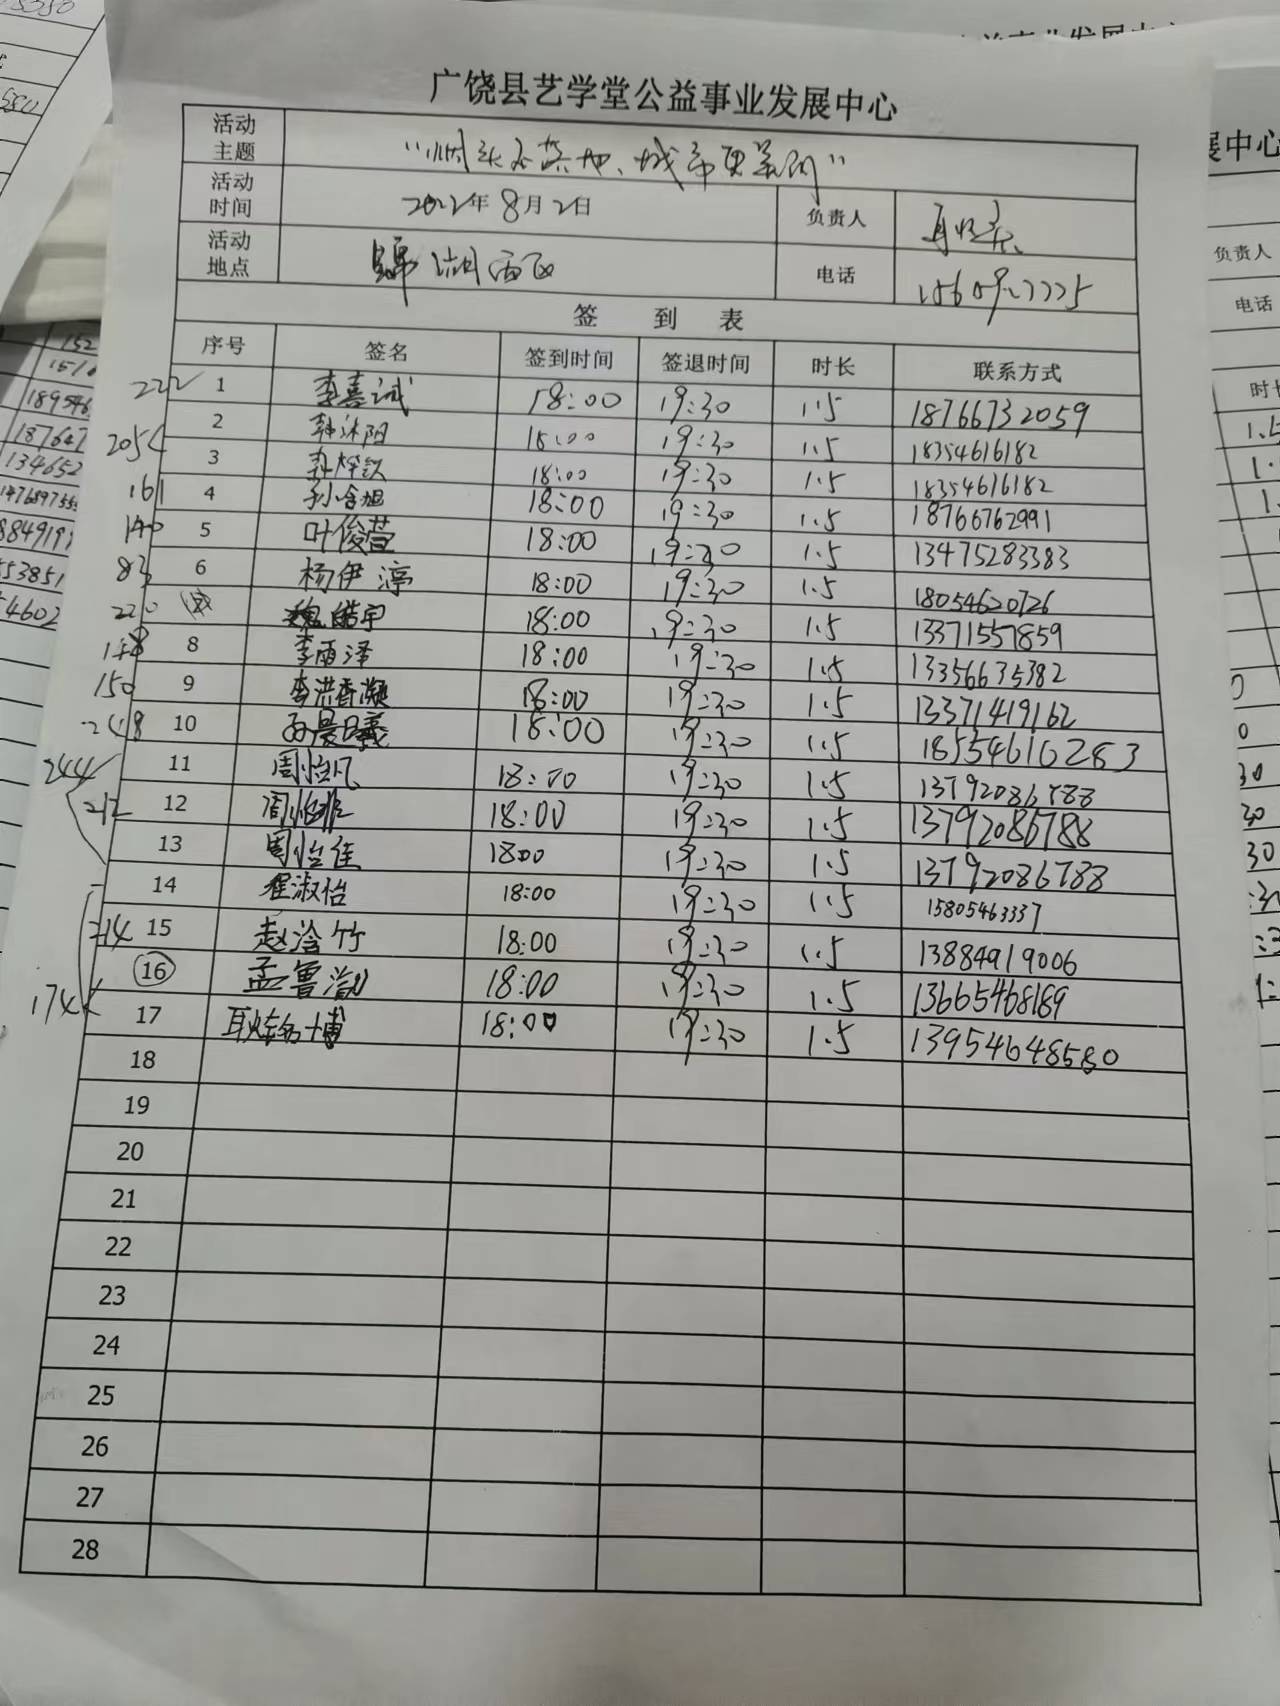 广饶县艺学堂公益事业发展中心
活动主题 “烟头不落地、城市更美丽”
活动时间 2022年8月2日 负责人
活动地点 锦湖西区 电话
签到表
序号 签名 签到时间 签退时间 时长 联系方式
222 1 李喜诚 18:00 19:30 1.5 18766732059
2 韩沐阳 18:00 19:30 1.5 18354616182
205 3 18:00 19:30 1.5 18354616182
161 4 孙含旭 18:00 19:30 1.5 18766762991
140 5 叶俊萱 18:00 19:30 1.5 13475283383
83 6 杨伊渟 18:00 19:30 1.5 18054620726
220 魏皓宇 18:00 19:30 1.5 13371557859
148 8 李雨泽 18:00 19:30 1.5 13356635382
150 9 李洪香凝 18:00 19:30 1.5 13371419162
248 10 18:00 19:30 1.5 18554610283
244 11 周怡凡 18:00 19:30 1.5 13792086788
212 12 18:00 19:30 1.5 13792086788
13 周怡佳 1800 19:30 1.5 13792086788
14 翟淑怡 18:00 19:30 1.5 15805463337
214 15 赵浛竹 18:00 19:30 1.5 13884919006
16 孟鲁 18:00 19:30 1.5 13665468189
174 17 耿 博 18:00 19:30 1.5 13954648580
18
19
20
21
22
23
24
25
26
27
28
展中心
负责人
电话